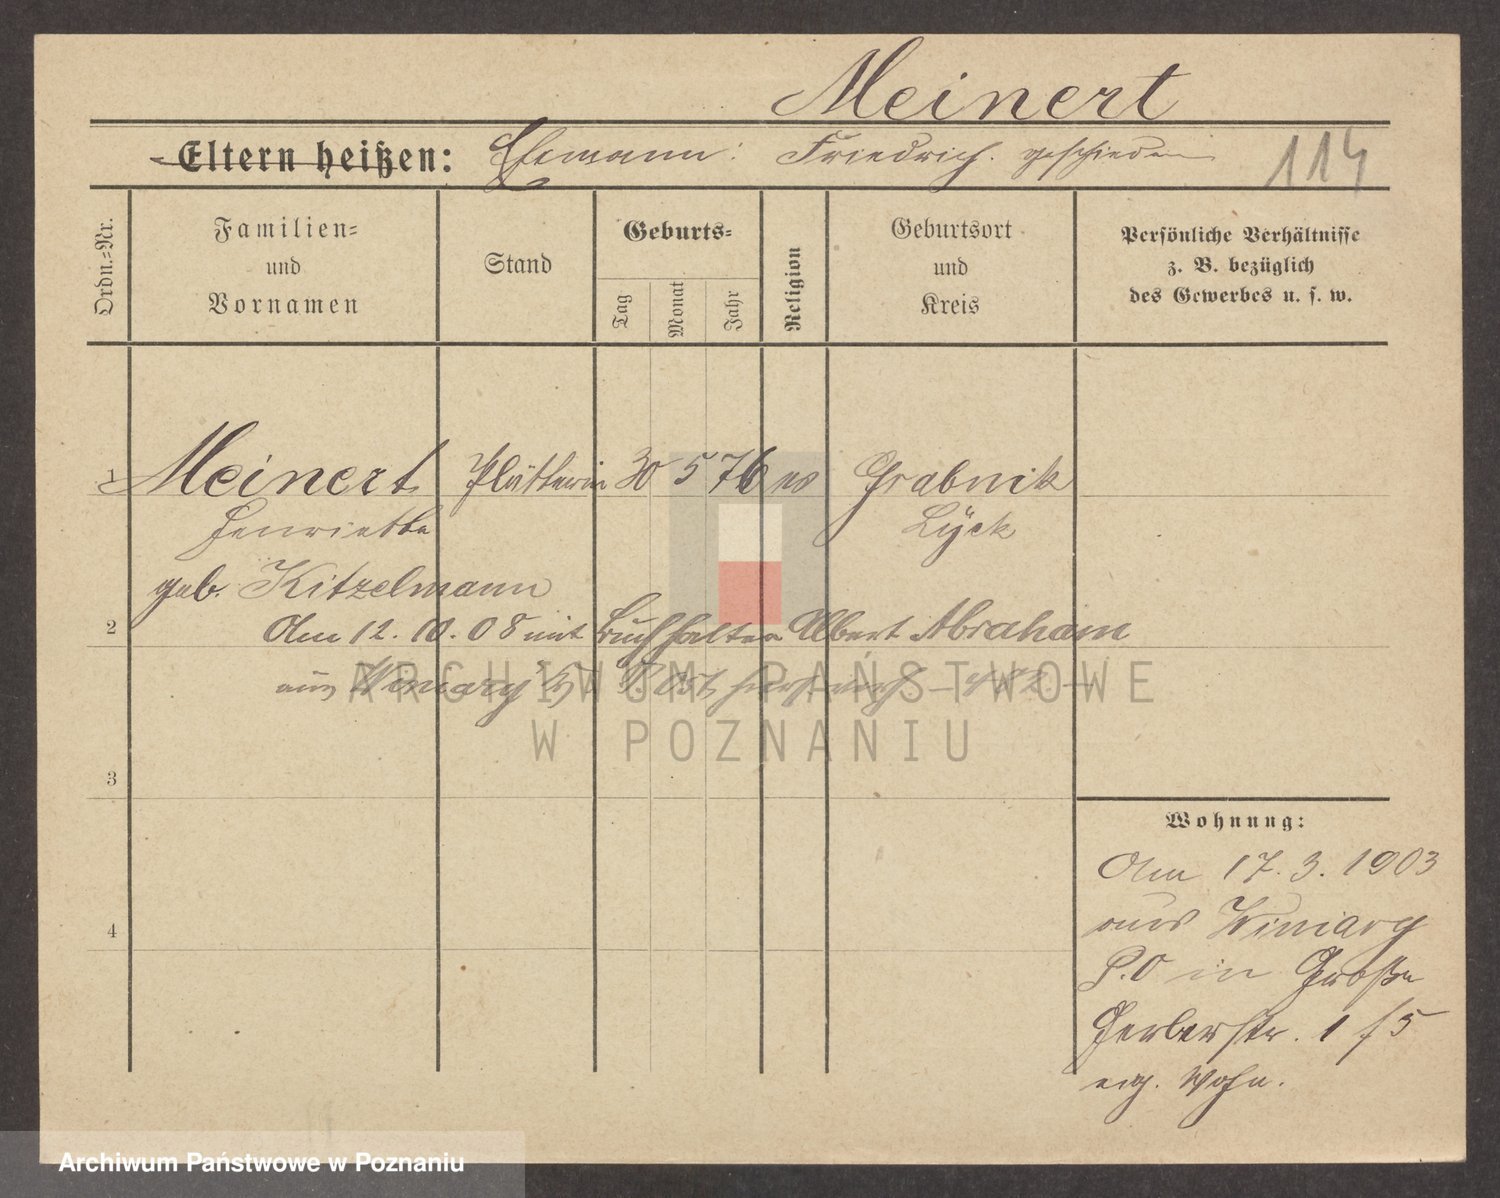 Meinert
Eltern heißen: Ehemann: Friedrich. geschieden
114
Ordn.=Nr.
Familien=
und
Vornamen
Stand
Geburts=
Tag
Monat
Jahr
Religion
Geburtsort
und
Kreis
Persönliche Verhältnisse
z. B. bezüglich
des Gewerbes u. s. w.
1 Meinert Plätterin 30 5 76 ev Grabnik
Henriette Lyck
geb. Kitzelmann
2 Am 12. 10. 08 mit Buchhalter Albert Abraham
aus Winiary
ARCHIWUM PAŃSTWOWE
W POZNANIU
3
Wohnung:
Am 17. 3. 1903
aus Winiary
P.O in Große
Gerberstr. 1 f 5
eig. Wohn.
4
Archiwum Państwowe w Poznaniu